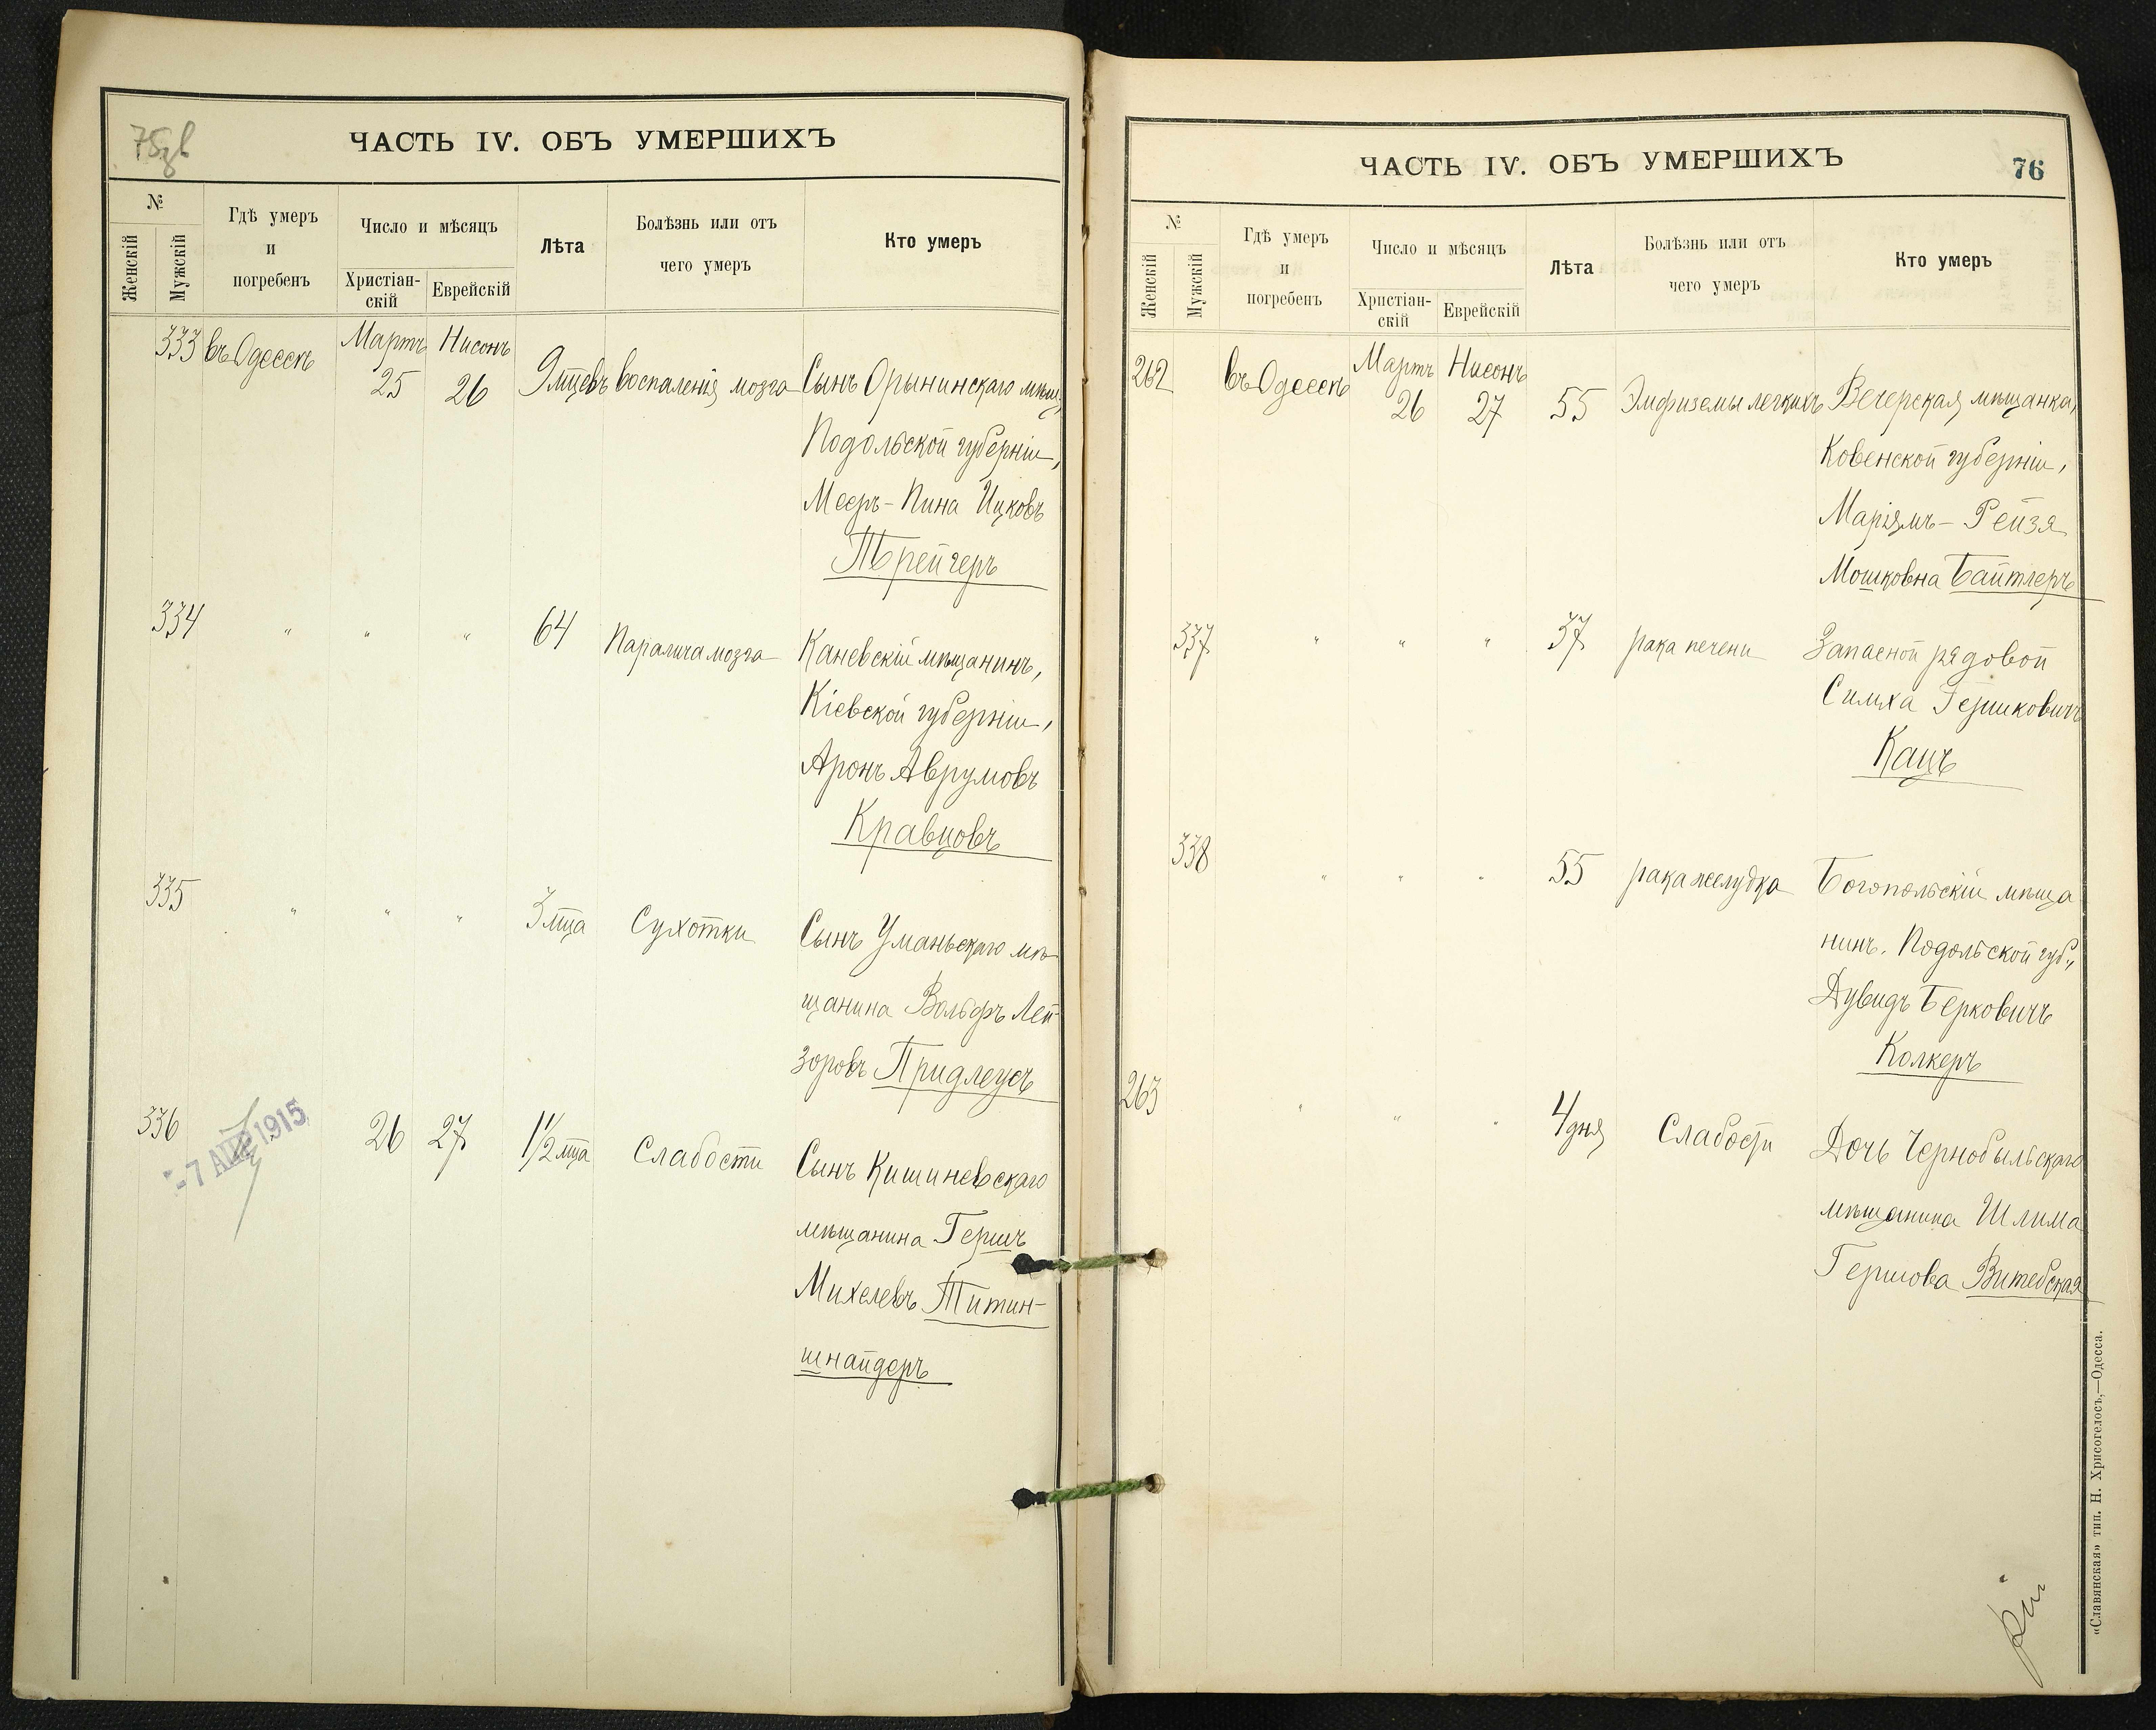 75зв
ЧАСТЬ IV. ОБЪ УМЕРШИХЪ
№
Женскій
Мужскій
Гдѣ умеръ
и
погребенъ
Число и мѣсяцъ
Христіан-
скій
Еврейскій
Лѣта
Болѣзнь или отъ
чего умеръ
Кто умеръ
333 въ Одессѣ Мартъ 25 Нисонъ 26 9 мцевъ воспаленія мозга Сынъ Орынинскаго мѣщ.
Подольской губерніи,
Мееръ-Пина Ицковъ
Трейгеръ
334 " " " 64 Паралича мозга Каневскій мѣщанинъ,
Кіевской губерніи,
Аронъ Аврумовъ
Кравцовъ
335 " " " 3 мца Сухотки Сынъ Уманьскаго мѣ-
щанина Вольфъ Лей-
зоровъ Придлеусъ
336 26 27 1 1/2 мца Слабости Сынъ Кишиневскаго
мѣщанина Гершъ
Михелевъ Титин-
шнайдеръ
-7 АПР 1915
ЧАСТЬ IV. ОБЪ УМЕРШИХЪ
76
№
Женскій
Мужскій
Гдѣ умеръ
и
погребенъ
Число и мѣсяцъ
Христіан-
скій
Еврейскій
Лѣта
Болѣзнь или отъ
чего умеръ
Кто умеръ
262 въ Одессѣ Мартъ 26 Нисонъ 27 55 Эмфиземы легкихъ Вегерская мѣщанка,
Ковенской губерніи,
Маріямъ-Рейзя
Мошковна Байтлеръ
337 " " " 37 рака печени Запасной рядовой
Симха Гершковичъ
Кацъ
338 " " " 55 рака желудка Богопольскій мѣща
нинъ. Подольской губ.,
Дувидъ Берковичъ
Колкеръ
263 " " " 4 дня Слабости Дочь Чернобыльскаго
мѣщанина Шлима
Гершова Витебская
«Славянская» тип. Н. Хрисогелосъ,—Одесса.